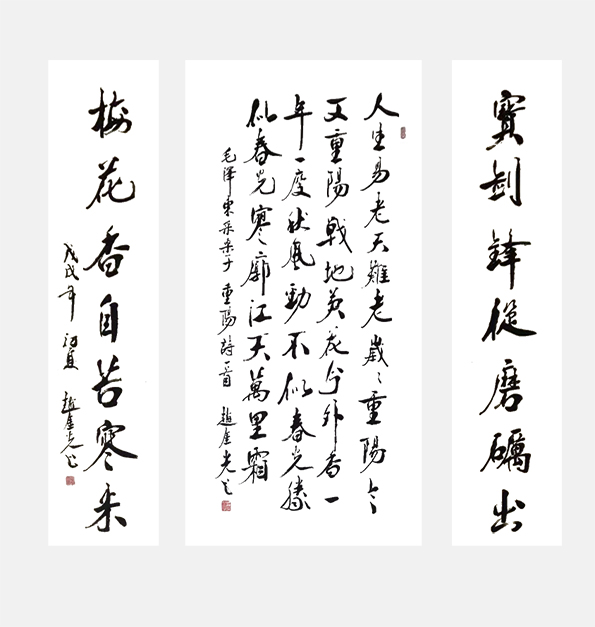 寶劍鋒從磨礪出
人生易老天難老歲〻重陽今
又重陽戰地黃花分外香一
年一度秋風勁不似春光勝
似春光寒廓江天萬里霜
毛澤東采桑子重陽詩一首 趙光书
梅花香自苦寒来
戊戌年 初夏 趙光书